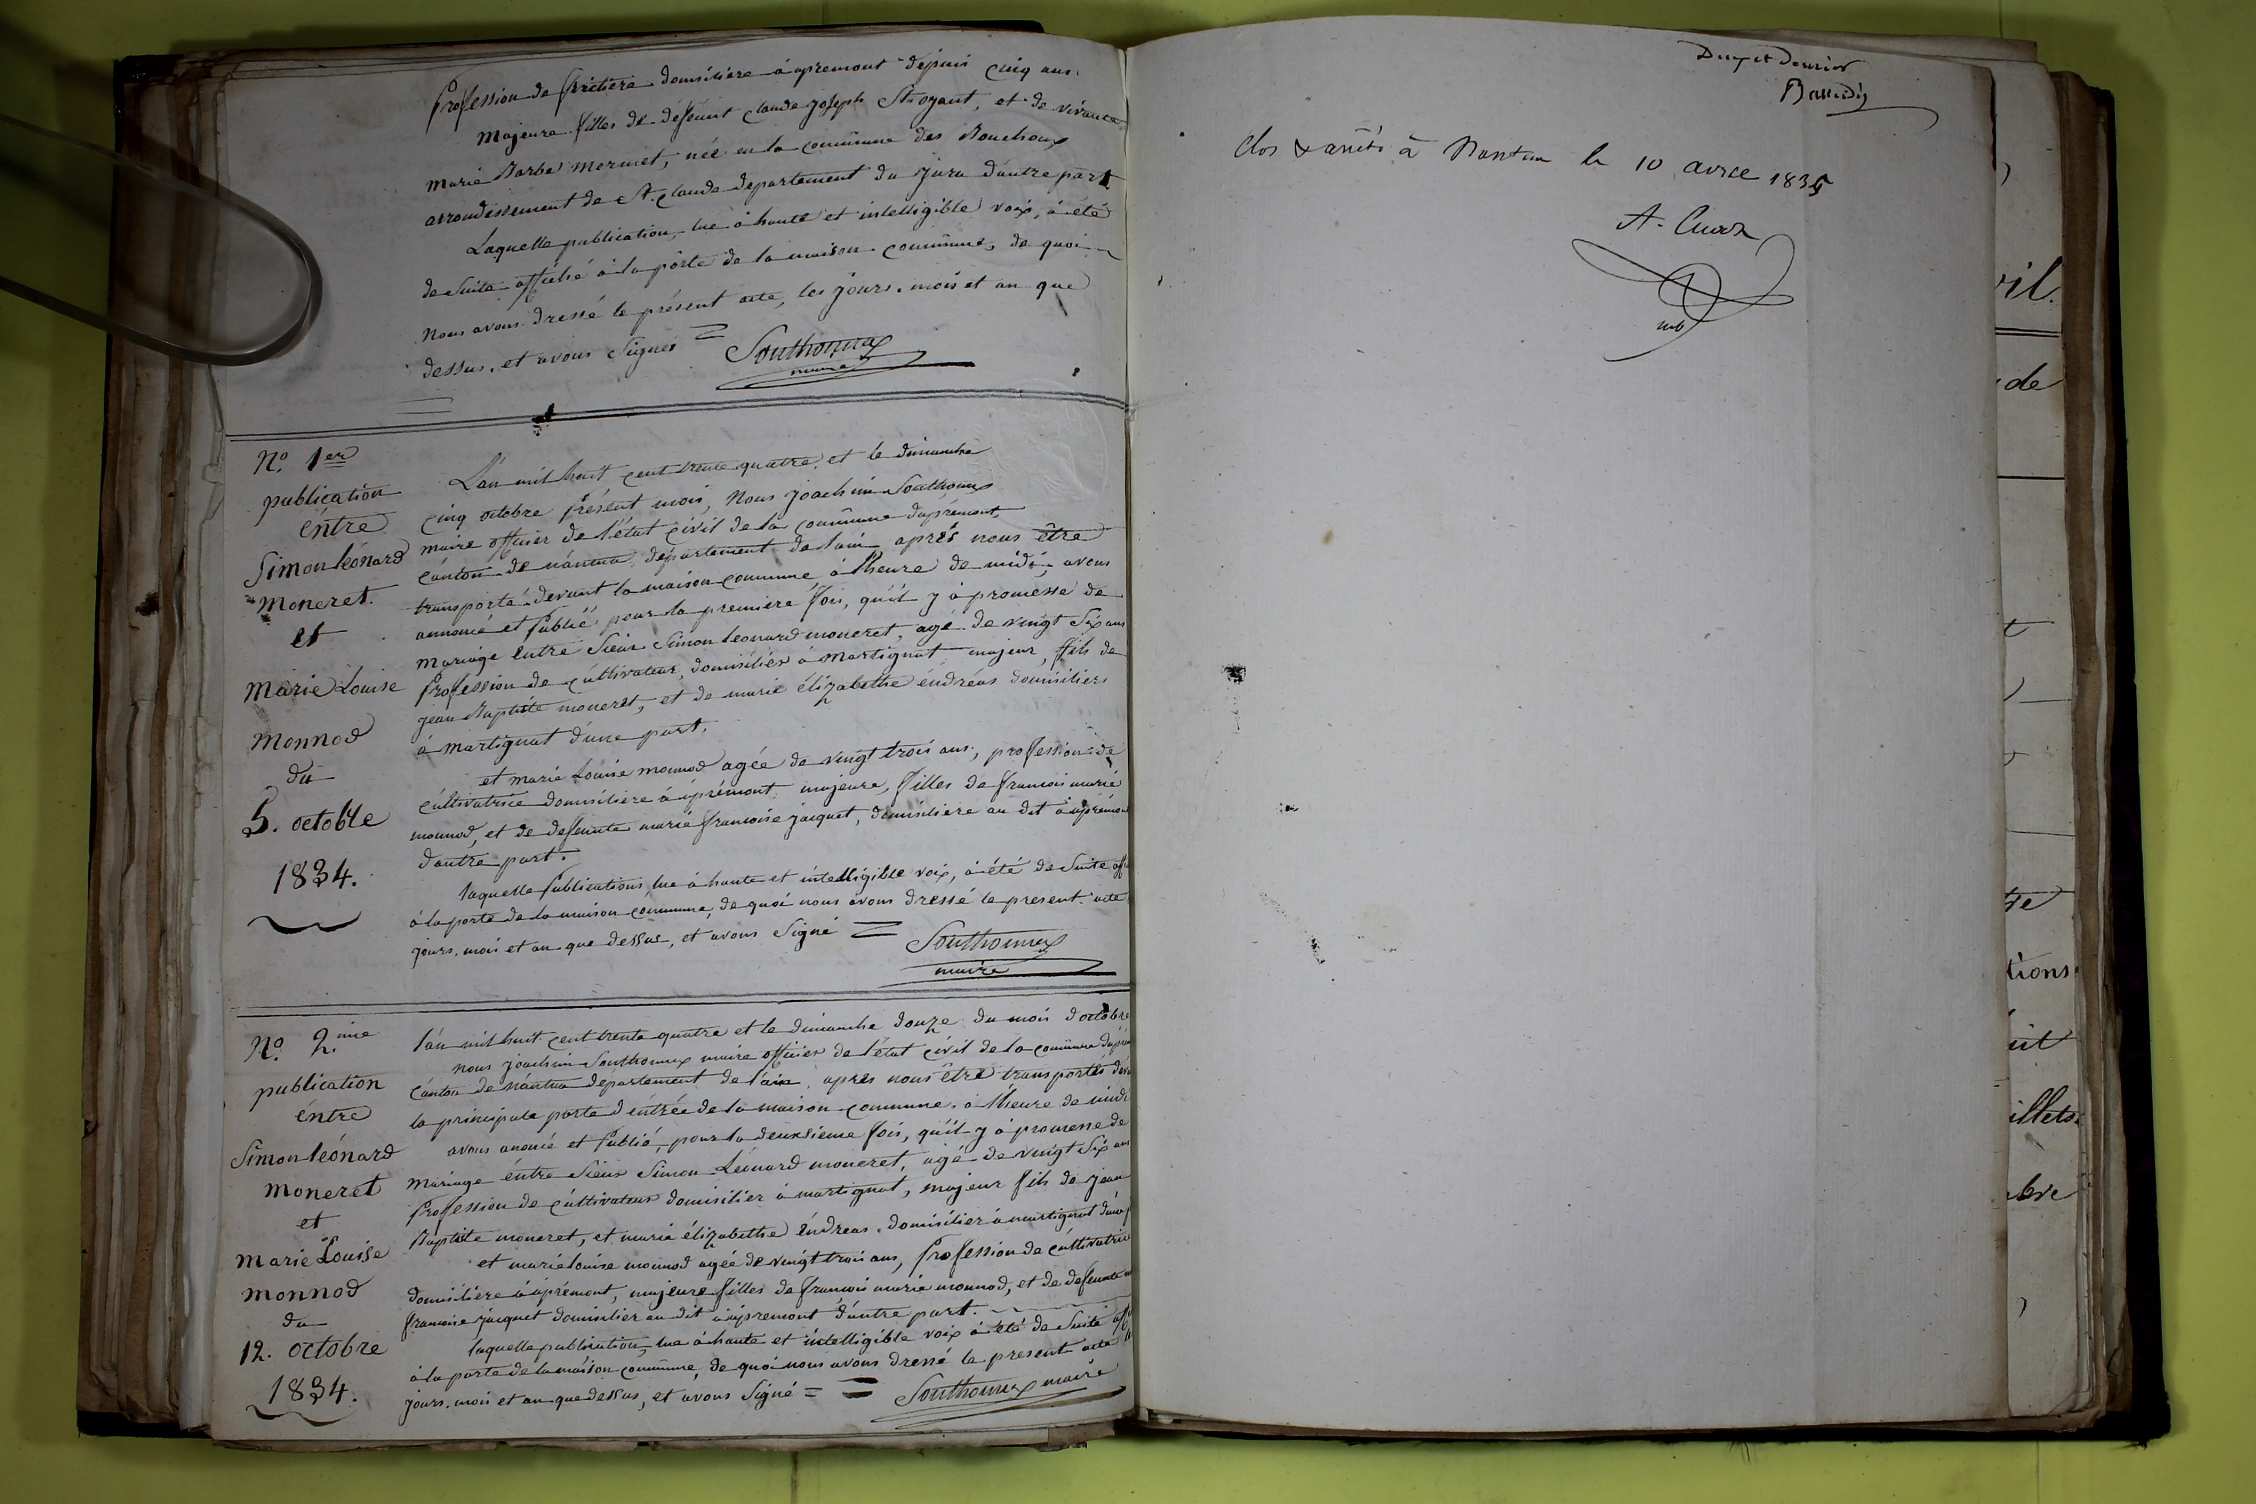 Profession de fruitière domisilière à apremont depuis cinq ans.
Majeure filles de deffunt claude joseph, et de vivante
marie Barbe Mermet, née en la commune des Bouchoux
arrondissement de St. claude departement du jura d'autre part.
Laquelle publication, lue à haute et intelligible voix, à été
de suite affiché à la porte de la maison commune, de quoi
Nous avons dressé le présent acte, les jours, mois et an que
dessus, et avons signés = Southonnax
maire
N.º 1er
publication
éntre
Simon léonard
Moneret.
et
Marie Louise
Monnod
du
5. octobre
1834.
L'an mil huit cent trente quatre, et le dimanche
cinq octobre présent mois, Nous joachim Southonnax
maire officier de l'état çivil de la commune d'aprémont,
canton de nantua, département de l'ain, aprés nous être
transporté devant la maison commune à l'heure de midi, avons
annoncé et publié pour la premiere fois, qu'il y à promesse de
mariage entre Sieur Simon leonard moneret, agé de vingt six ans
profession de cultivateur, domisilier à Martignat majeur, fils de
jean Baptiste moneret, et de marie élizabethe éndréas domisiliers
à martignat d'une part,
et marie Louise monnod agée de vingt trois ans, profession de
cultivatrice domisilière à aprémont, majeure, filles de francois marie
monnod, et de defeunte marie francoise jacquet, domisiliere au dit à aprémon
d'autre part.
laquelle publications lue à haute et intelligible voix, à été de suite aff
à la porte de la maison commune, de quoi nous avons dressé le present acte
jours, mois et an que dessus, et avons signé = Southonnax
maire
N.º 2.ime
publication
éntre
Simon léonard
Moneret
et
Marie Louise
monnod
du
12. octobre
1834.
l'an mil huit cent trente quatre et le dimanche douze du mois d'octobre
nous joachim Southonnax maire officier de l'état çivil de la commune
Canton de nantua departement de l'ain, apres nous être transportés
la principale porte d'éntrée de la maison commune, à l'heure de midi
avons anoncé et publié, pour la deuxsieme fois, qu'il y à promesse de
mariage éntre Sieur Simon Léonard moneret, agé de vingt six ans
profession de cultivateur domisilier à martignat, majeur fils de jean
Baptiste moneret, et marie élizabethe éndreas, domisilier à martignat
et marie louise monnod agée de vingt trois ans, profession de cultivatrice
domisiliere à aprémont, majeure filles de francois marie monnod, et de defeunte
francoise jacquet domisilier au dit à apremont d'autre part.
laquelle publication, lue à haute et intelligible voix à été de suite
à la porte de la maison commune, de quoi nous avons dressé le present acte
jours, mois et an que dessus, et avons signé = = Southonnax maire
Clos & arrêté à Nantua le 10 avril 1835
vil.
de
tions
illets